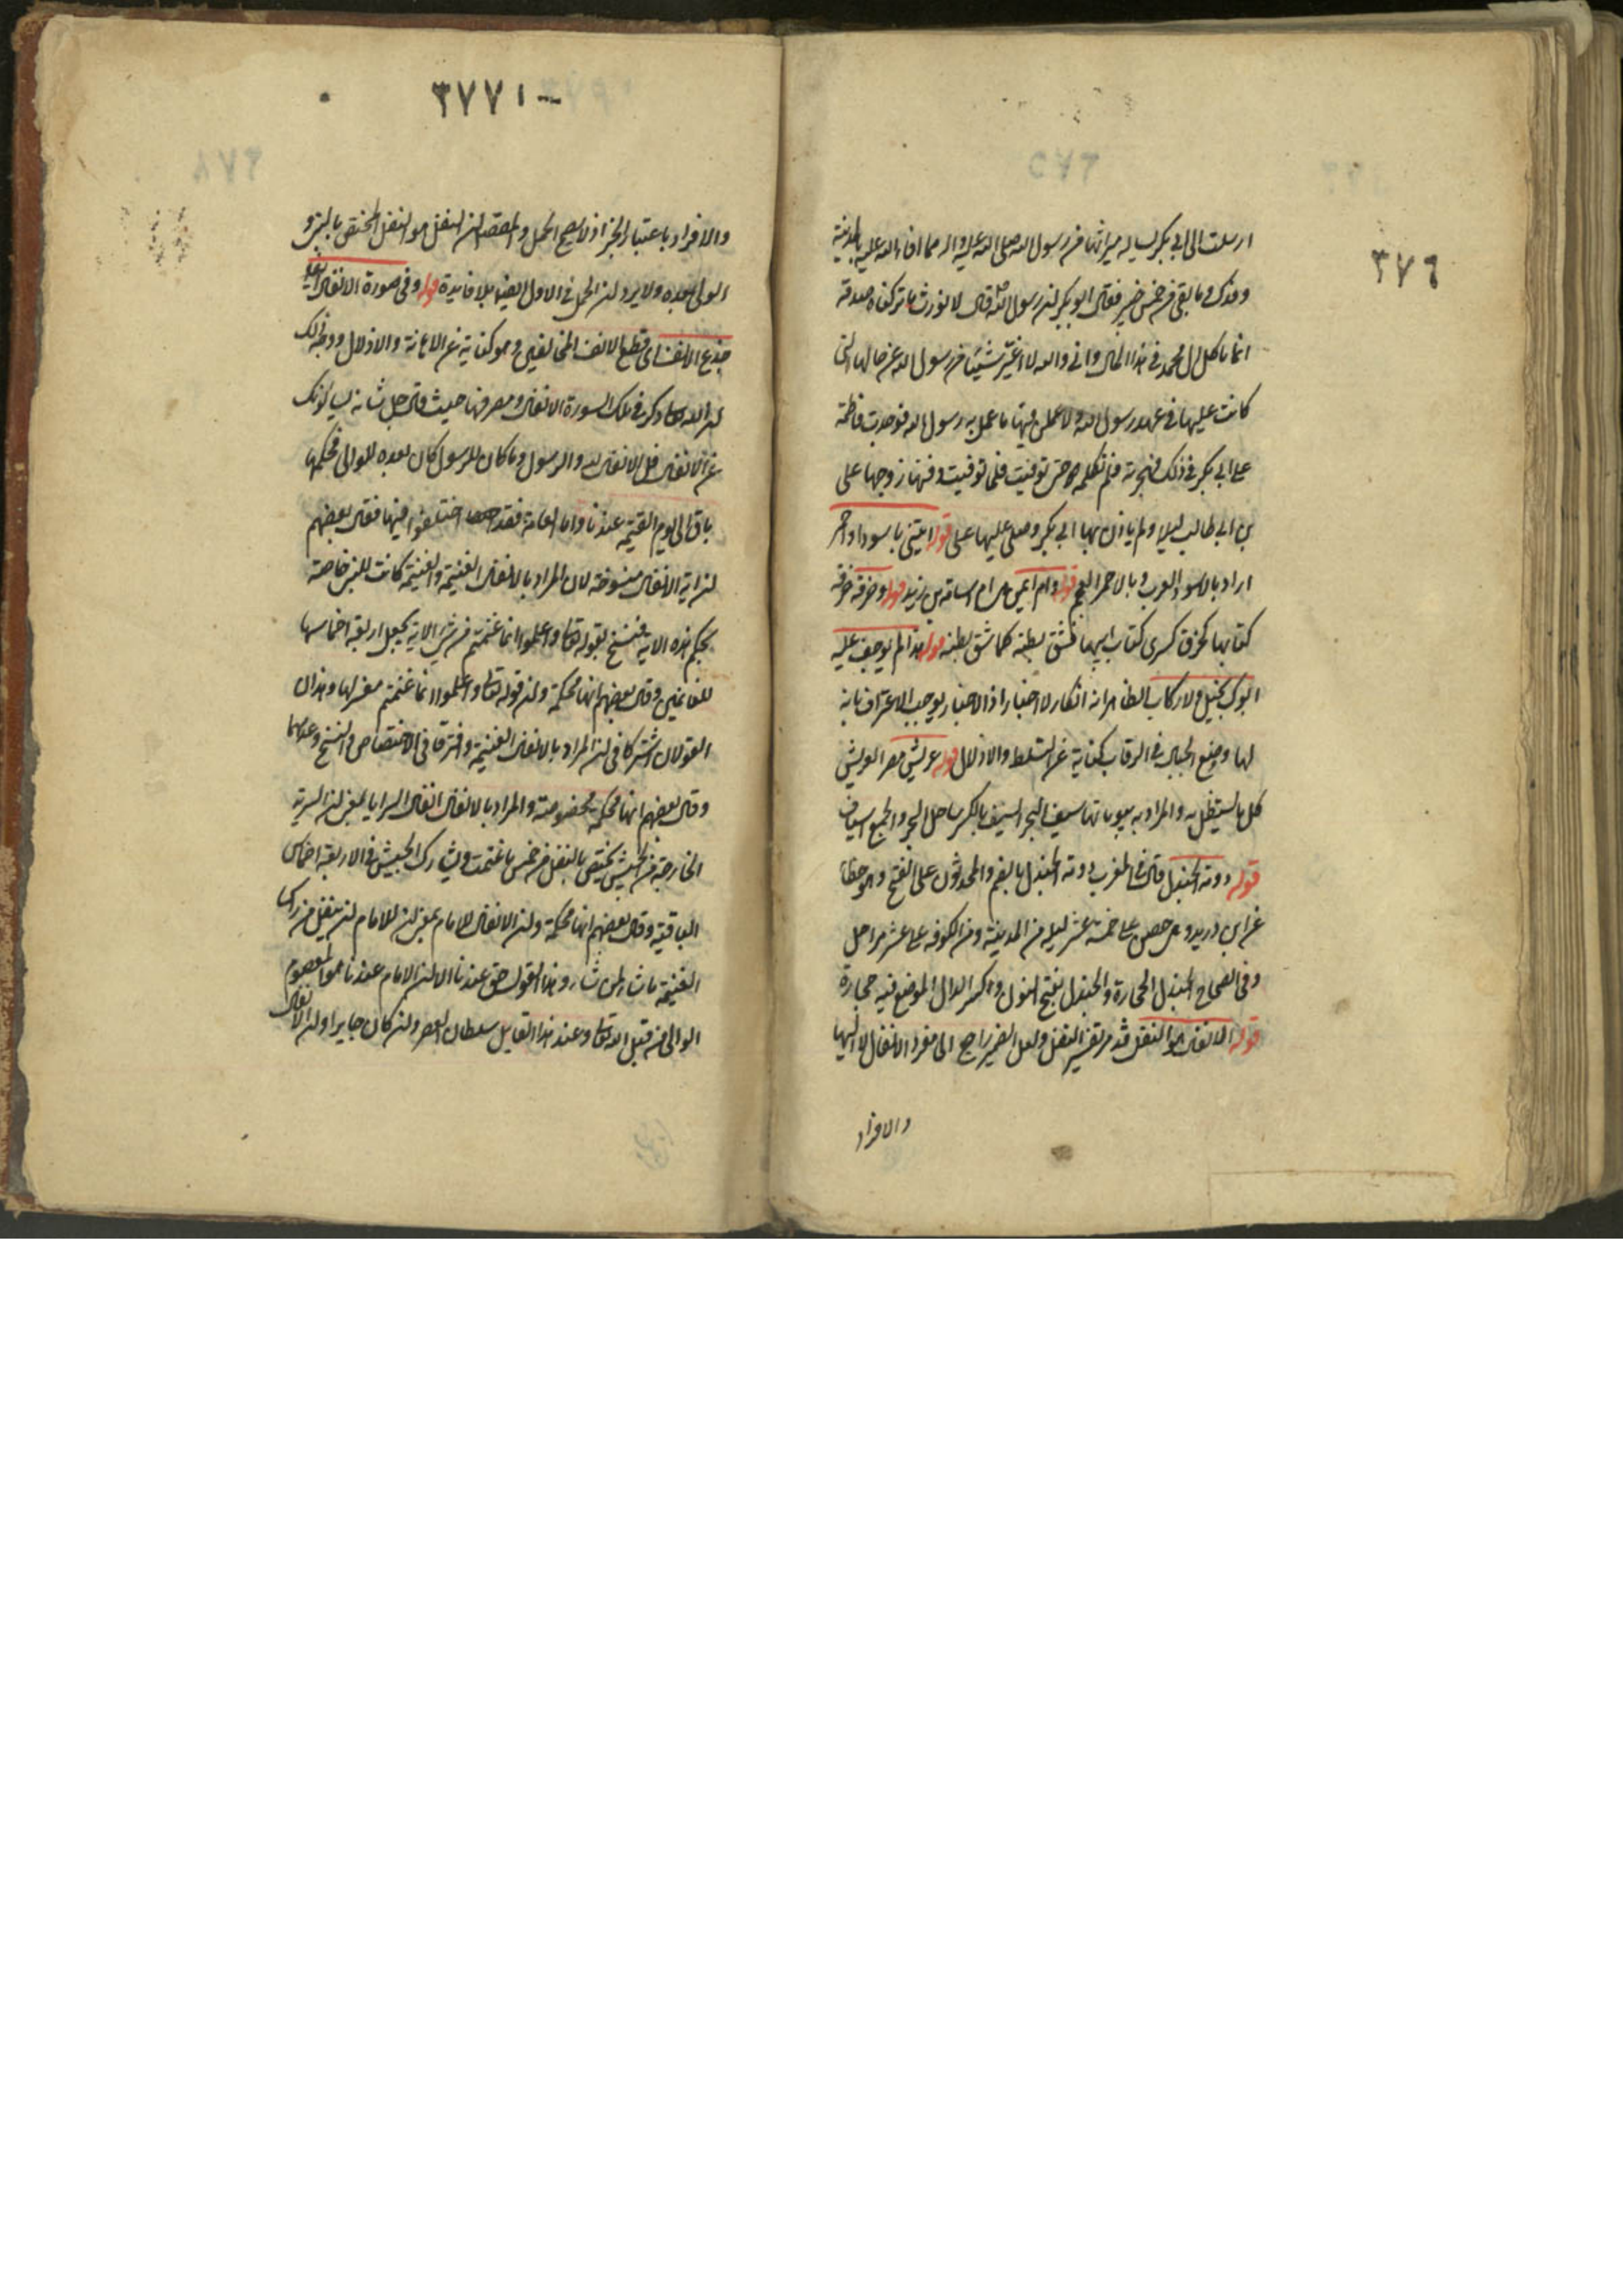 ٣٧٦
ارسلت الى ابي بكر يساله ميراثها من رسول الله صلى الله عليه واله مما افاء الله عليه بالمدينة
وفدك وما بقى من خمس خيبر فقال ابو بكر ان رسول الله قال لا نورث ما تركناه صدقة
انما ياكل ال محمد في هذا المال واني والله لا اغير شيئا من رسول الله عن حالها التي
كانت عليها في عهد رسول الله ولا عملن فيها ما عمل به رسول الله فوجدت فاطمة
على ابي بكر في ذلك فهجرته فلم تكلمه حتى توفيت فلما توفيت دفنها زوجها علي
بن ابي طالب ليلا ولم ياذن بها ابي بكر وصلى عليها على قوله ايتني باسود او احمر
اراد بالاسود العرب وبالاحمر العجم قوله وام ايمن هي ام اسامة بن زيد قوله وخرقه خرقة
كتابها كخرق كسرى كتاب ابيها فشق بطنه كما شق بطنه قوله هذا لم يوجف عليه
ابوك بخيل ولا ركاب الظاهر انه انكار لا اخبار اذ الاخبار يوجب الاعتراف بانه
لها ووضع الجبال في الرقاب كناية عن التسلط والاذلال قوله عريش مصر العريش
كل ما يستظل به والمراد به بيوتاتها سيف البحر السيف بالكسر ساحل البحر والجمع اسياف
قوله دومة الجندل قال في المغرب دومة الجندل بالضم والمحدثون على الفتح وهو خطأ
عن ابن دريد وهي حصن على خمسة عشر ليلة من المدينة ومن الكوفه على عشر مراحل
وفي الصحاح الجندل الحجارة والجندل بفتح النون وكسر الدال الموضع فيه حجارة
قوله الانفال هو النفل قد مر تفسير النفل ولعل الضمير راجع الى مفرد الانفال لا اليها
والافراد
٣٧٧١
والافراد باعتبار الخبر اذ لا يصح الحمل والمقصد ان النفل هو النفل المختص بالنبي و
الولي بعده ولا يرد ان الحمل في الاول ايضا بلا فايدة قوله وفي صورة الانفال
جذع الانف اى قطع الانف المخالفين وهو كناية عن الاهانة والاذلال ووجه ذلك
ان الله تعالى ذكر في تلك السورة الانفال ومصرفها حيث قال جل شانه يسالونك
عن الانفال قل الانفال لله والرسول وما كان للرسول كان بعده للوالي فحكمها
باق الى يوم القيمة عندنا واما العامة فقد اختلفوا فيها فقال بعضهم
ان اية الانفال منسوخة لان المراد بالانفال الغنيمة والغنيمة كانت للنبي خاصة
بحكم هذه الاية فنسخ بقوله تعالى واعلموا انما غنمتم من شئ الاية بجعل اربعة اخماسها
للغانمين وقال بعضهم انها محكمة وان قوله تعالى واعلموا انما غنمتم مفسر لها وهذان
القولان اشتركا في ان المراد بالانفال الغنيمه وافترقا في الاختصاص والنسخ وعدمهما
وقال بعضهم انها محكمة مخصوصة والمراد بالانفال انفال السرايا يعني ان السرية
الخارجة من الجيش يختص بالنفل من خمس ما غنمت ويشارك الجيش في الاربعة اخماس
الباقية وقال بعضهم انها محكمة وان الانفال للامام بمعنى ان للامام ان ينفل من راس
الغنيمة ما شاء لمن شاء وهذا القول حق عندنا الا ان الامام عندنا هو المعصوم
الوالي من قبل الله تعالى وعند هذا القايل سلطان العصر وان كان جايرا وان الانفال